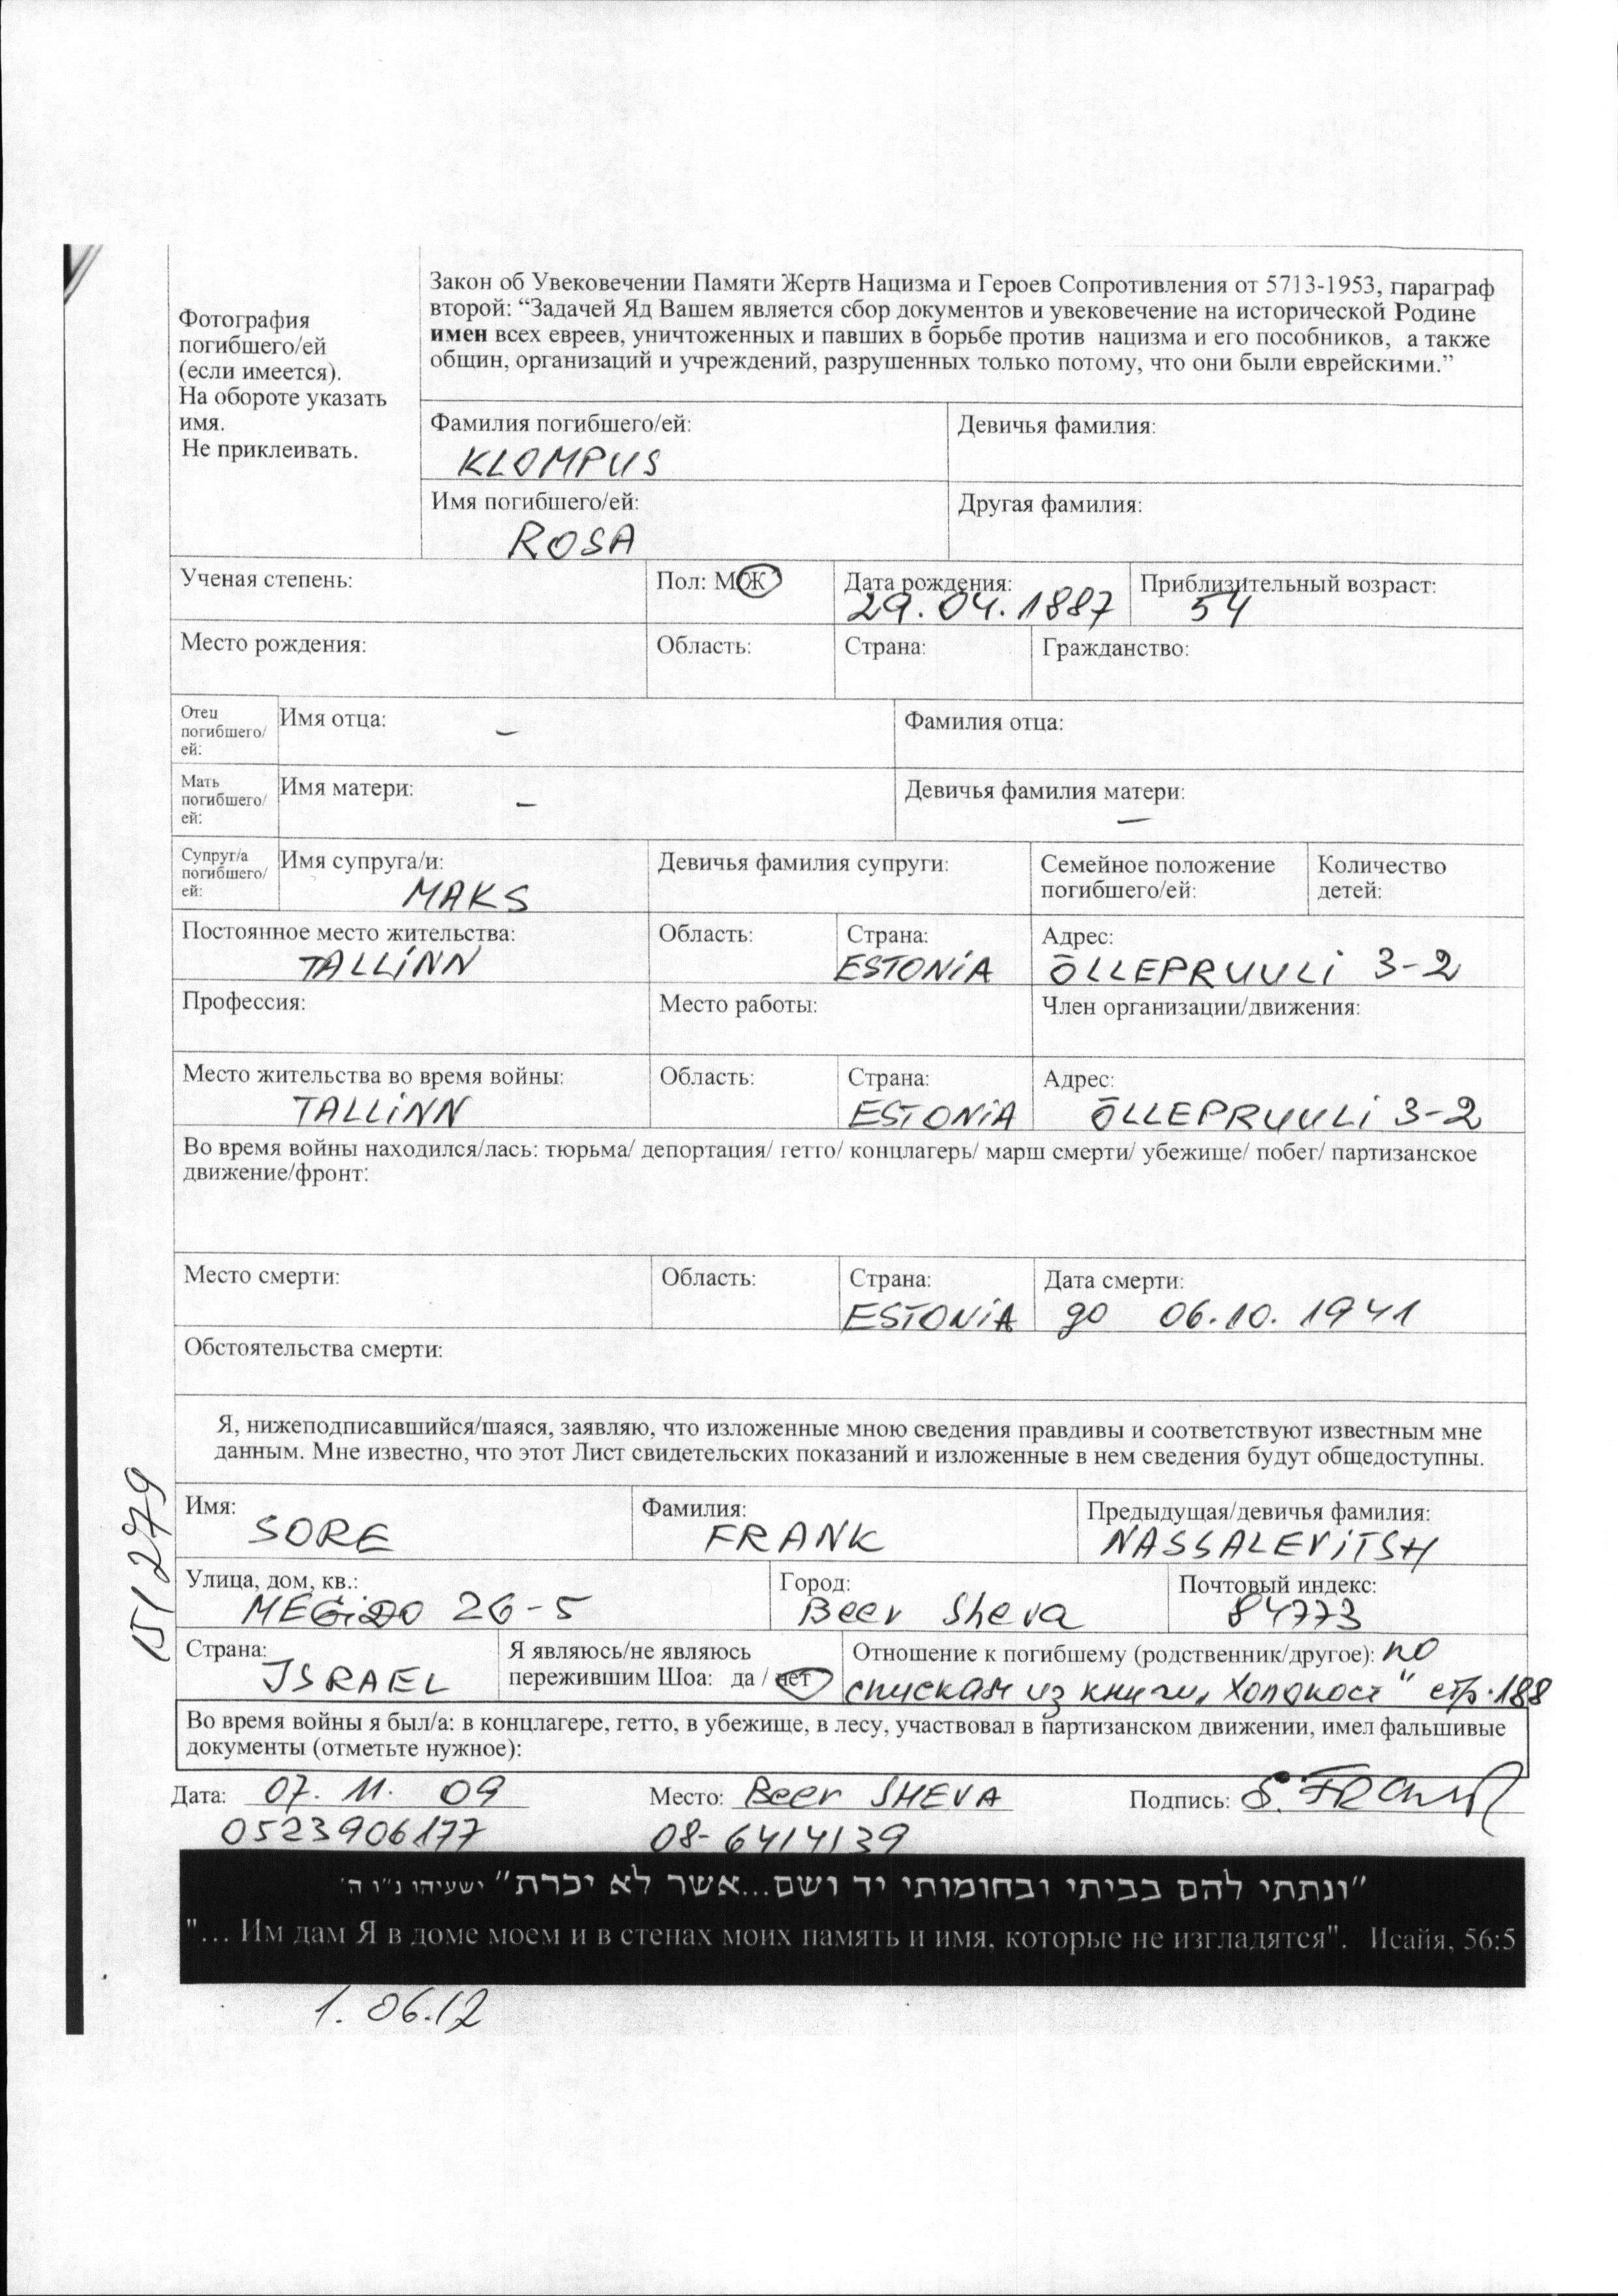 Фотография
погибшего/ей
(если имеется).
На обороте указать
имя.
Не приклеивать.
Закон об Увековечении Памяти Жертв Нацизма и Героев Сопротивления от 5713-1953, параграф
второй: “Задачей Яд Вашем является сбор документов и увековечение на исторической Родине
имен всех евреев, уничтоженных и павших в борьбе против нацизма и его пособников, а также
общин, организаций и учреждений, разрушенных только потому, что они были еврейскими.”
Фамилия погибшего/ей: Девичья фамилия:
KLOMPUS
Имя погибшего/ей: Другая фамилия:
ROSA
Ученая степень: Пол: М Ж Дата рождения: Приблизительный возраст:
29.04.1887 54
Место рождения: Область: Страна: Гражданство:
Отец
погибшего/
ей:
Имя отца: – Фамилия отца:
Мать
погибшего/
ей:
Имя матери: – Девичья фамилия матери: –
Супруг/а
погибшего/
ей:
Имя супруга/и: Девичья фамилия супруги: Семейное положение
погибшего/ей: Количество
детей:
MAKS
Постоянное место жительства: Область: Страна: Адрес:
TALLiNN ESTONiA ÕLLEPRUULi 3-2
Профессия: Место работы: Член организации/движения:
Место жительства во время войны: Область: Страна: Адрес:
TALLiNN ESTONiA ÕLLEPRUULi 3-2
Во время войны находился/лась: тюрьма/ депортация/ гетто/ концлагерь/ марш смерти/ убежище/ побег/ партизанское
движение/фронт:
Место смерти: Область: Страна: Дата смерти:
ESTONiA до 06.10.1941
Обстоятельства смерти:
Я, нижеподписавшийся/шаяся, заявляю, что изложенные мною сведения правдивы и соответствуют известным мне
данным. Мне известно, что этот Лист свидетельских показаний и изложенные в нем сведения будут общедоступны.
Имя: Фамилия: Предыдущая/девичья фамилия:
SORE FRANK NASSALEViTSH
Улица, дом, кв.: Город: Почтовый индекс:
MEGiDO 26-5 Beer Sheva 84773
Страна: Я являюсь/не являюсь
пережившим Шоа: да / нет
ISRAEL
Отношение к погибшему (родственник/другое): по
спискам из книги „Холокост" стр.188
Во время войны я был/а: в концлагере, гетто, в убежище, в лесу, участвовал в партизанском движении, имел фальшивые
документы (отметьте нужное):
Дата: 07.11.09 Место: Beer SHEVA Подпись: S. Frank
0523906177 08-6414139
"ונתתי להם בביתי ובחומותי יד ושם...אשר לא יכרת" ישעיהו נ"ו ה'
"... Им дам Я в доме моем и в стенах моих память и имя, которые не изгладятся". Исайя, 56:5
1.06.12
151279